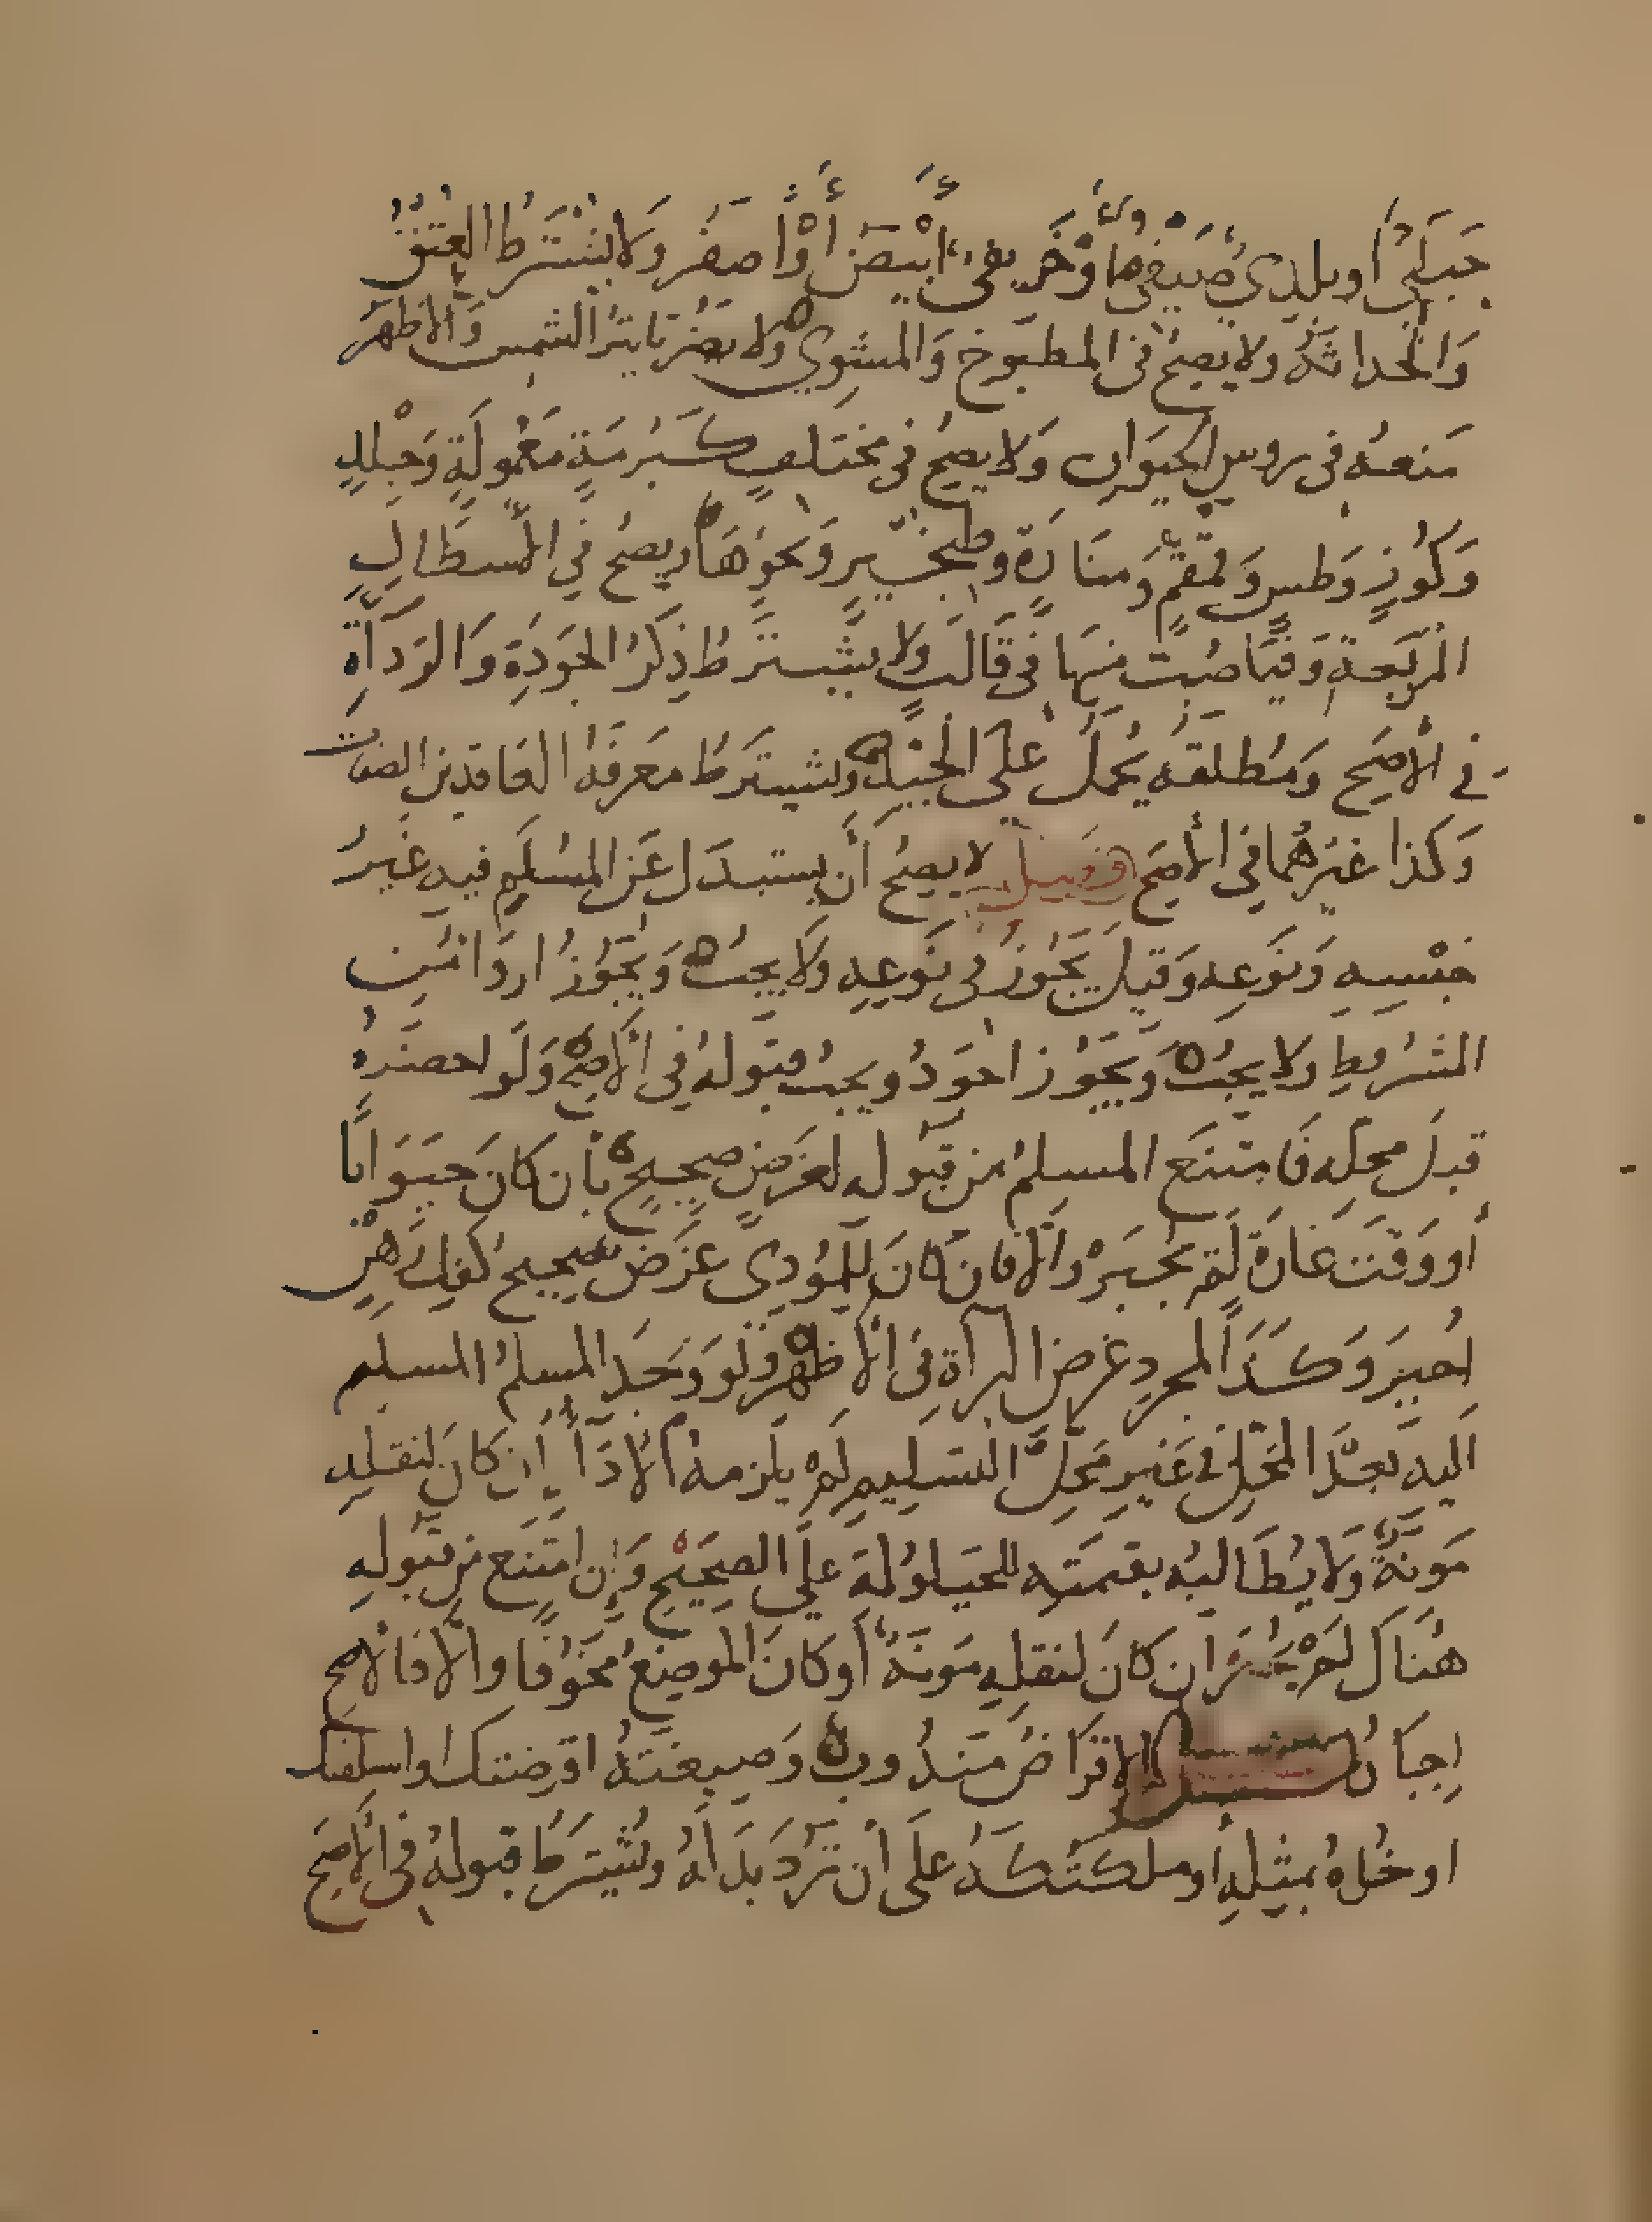 جبلي او بلدي صيفي او خريفي ابيض او اصفر ولا يشترط العتق
والحداثة ولا يصح في المطبوخ والمشوي ولا يضر تاثير الشمس والاظهر
منعه في روس الحيوان ولا يصح في مختلف كبرمة معمولة وجلد
وكوز وطس وقمقم ومنارة وطنجير ونحوها ويصح في الاسطال
المربعة وفيما صب منها في قالب ولا يشترط ذكر الجودة والرداة
في الأصح ومطلقه يحمل على الجيد ويشترط معرفة العاقدين الصفات
وكذا غيرهما في الأصح فصل لا يصح أن يستبدل عن المسلم فيه غير
جنسه ونوعه وقيل يجوز في نوعه ولا يجب ويجوز اردا من
المشروط ولا يجب ويجوز اجود ويجب قبوله في الأصح ولو احضره
قبل محله فامتنع المسلم من قبوله لغرض صحيح بأن كان حيوانا
أو وقت غارة لم يجبر وإلا فان كان للمودي غرض صحيح كفك رهن
اجبر وكذا لمجرد غرض البراة في الأظهر ولو وجد المسلم المسلم
اليه بعد المحل في غير محل التسليم لم يلزمه الأدآ إن كان لنقله
مونة ولا يطالبه بقيمته للحيلولة على الصحيح وإن امتنع من قبوله
هناك لم يجبر ان كان لنقله مونة أو كان الموضع مخوفا وإلا فالأصح
اجباره فصل الاقراض مندوب وصيغته اقرضتك او اسلفتك
او خذه بمثله أو ملكتكه على أن ترد بدله ويشترط قبوله في الأصح